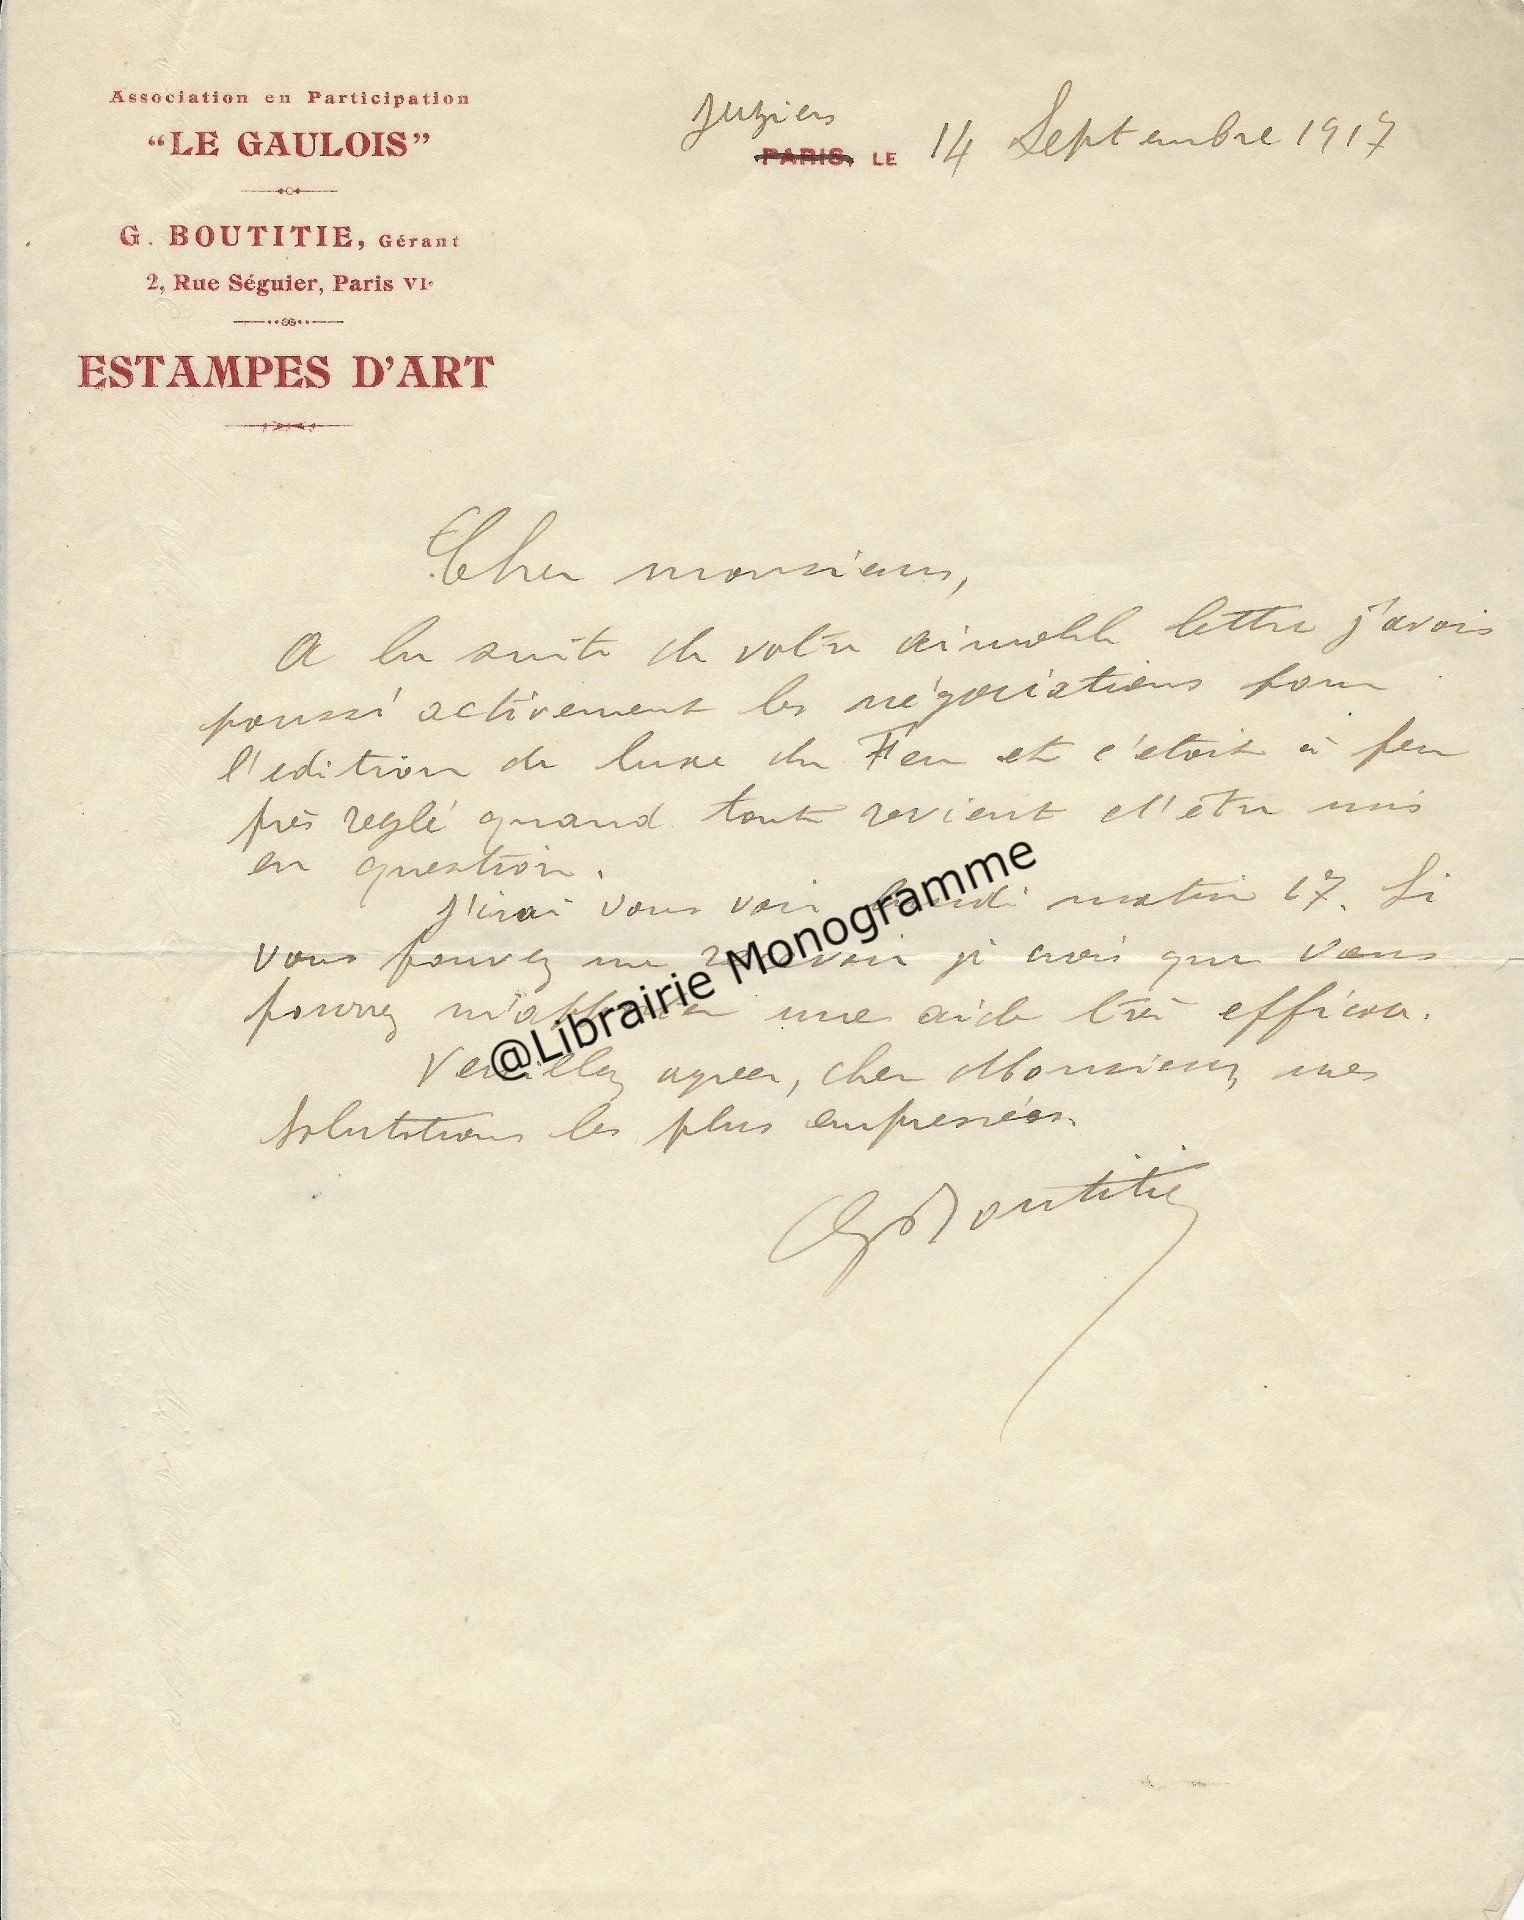 Association en Participation
“LE GAULOIS”
G. BOUTITIE, Gérant
2, Rue Séguier, Paris VIe
ESTAMPES D'ART
Juziers
PARIS, LE 14 Septembre 1917
Cher monsieur,
A la suite de votre aimable lettre j'avais
poussé activement les négociations pour
l'edition de luxe du Feu et c'etait à peu
près reglé quand tout revient d'être mis
en question.
J'irai vous voir lundi matin 17. Si
vous pouvez me recevoir je crois que vous
pourrez m'apporter une aide très efficace.
Veuillez agreer, cher Monsieur, mes
salutations les plus empressées.
G Boutitie
@Librairie Monogramme